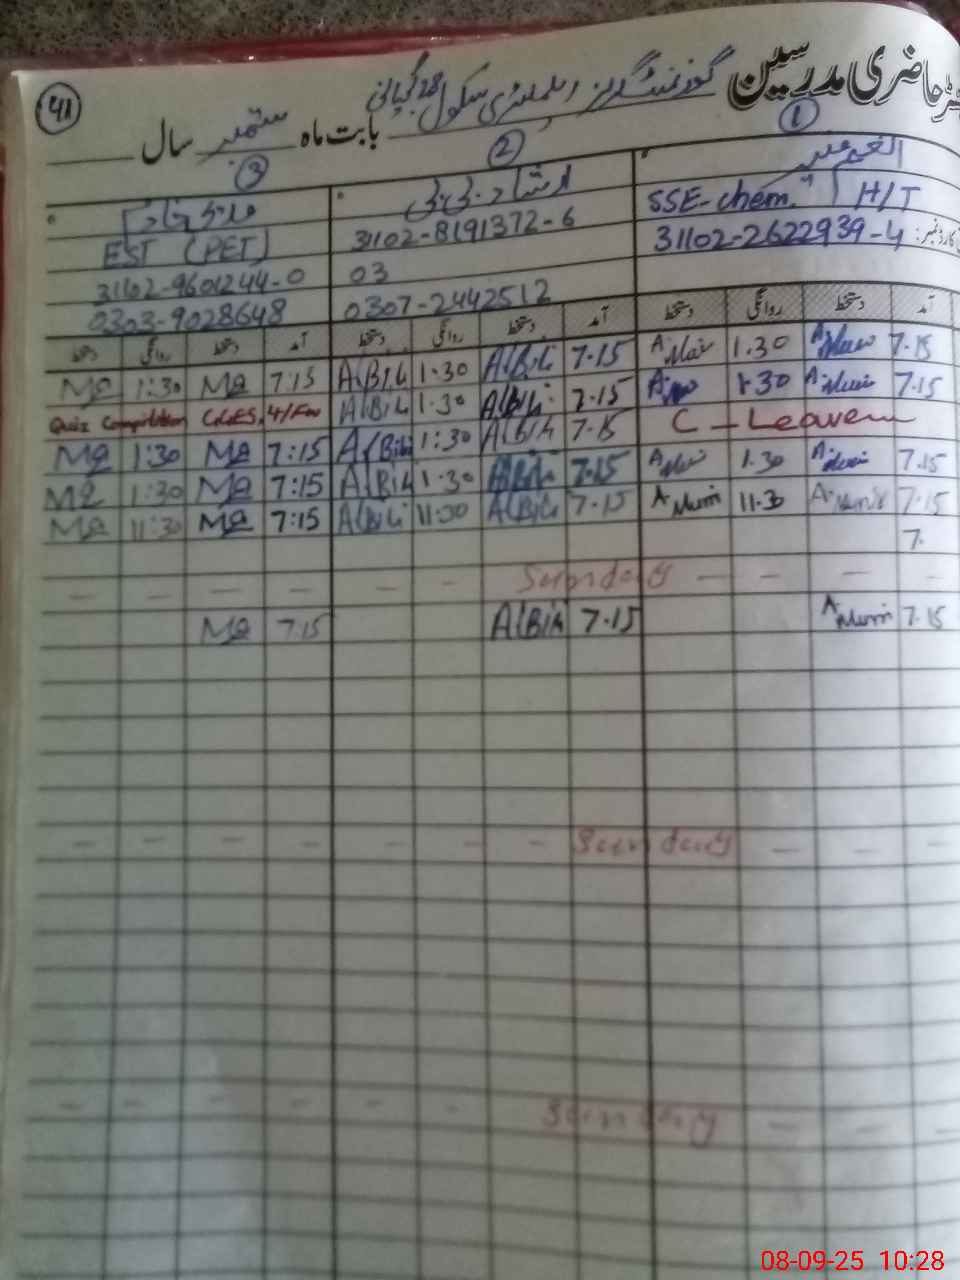 حاضری مدرسین گورنمنٹ گرلز ایلیمنٹری سکول
بابت ماہ ستمبر سال
41
1 2 3
ارشاد بی بی
SSE-chem. H/T
31102-8191372-6
EST (PET)
31102-2622939-4
03
31102-9601244-0
0307-2442512
0303-9028648
آمد دستخط روانگی دستخط آمد دستخط روانگی دستخط آمد دستخط روانگی دستخط
7.15 1.30 7.15 A(Bibi 1.30 A(Bibi 7:15 MQ 1:30 MQ
7.15 1.30 7.15 A(Bibi 1.30 A(Bibi Quiz Competition
C - Leave 7.15 A(Bibi 1:30 A(Bibi 7:15 MQ 1:30 MQ
7.15 1.30 7.15 A(Bibi 1.30 A(Bibi 7:15 MQ 1:30 MQ
7.15 11.30 7.15 A(Bibi 11:30 A(Bibi 7:15 MQ 11:30 MQ
7.
- - - - - - Sunday - - - -
7.15 7.15 A(Bibi 7.15 MQ
- - - - - - Sunday - - -
- - - - - - Sunday - - -
08-09-25 10:28